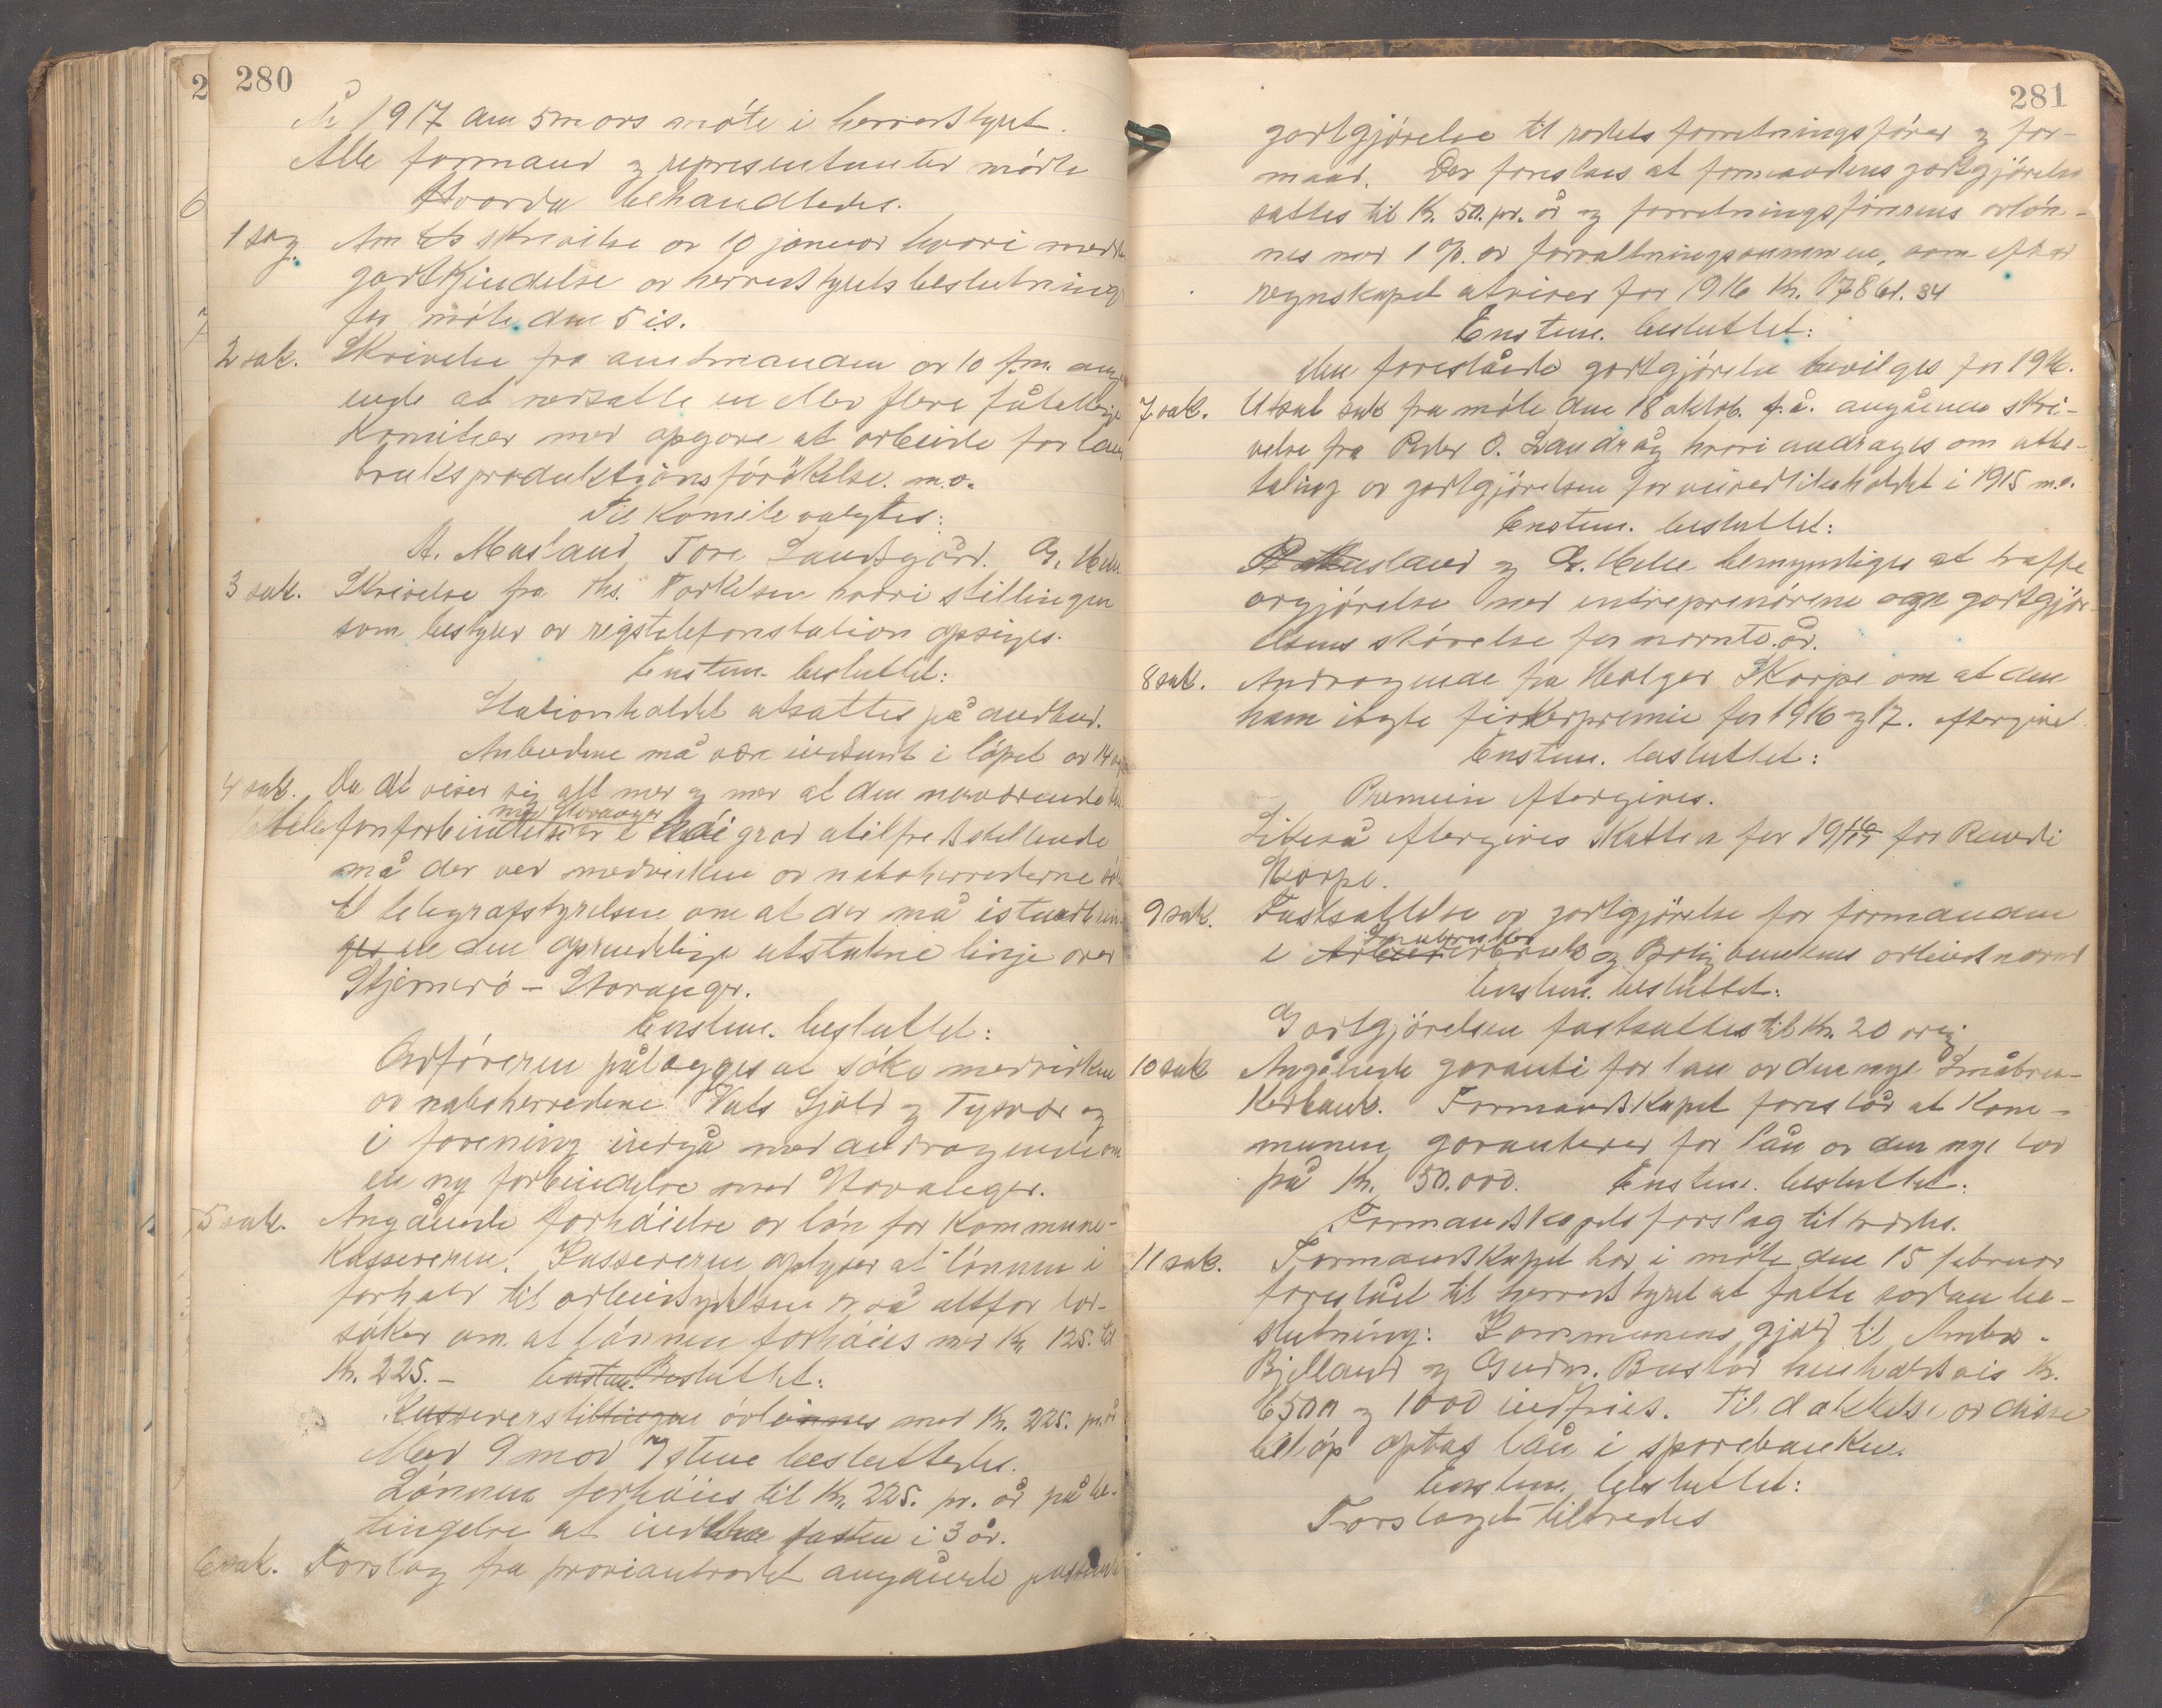 280
År 1917 den 5 mars møte i herredstyret.
Alle formænd og representanter mødte
Hvorda behandledes.
1 sag. Amtets skrivelse av 10 januar hvori medde
godkjendelse av herredstyrets beslutninger
fra møte den 5 i.s.
2 sak. Skrivelse fra amtmanden av 10 f.m. angå
ende at nedsætte en eller flere fåtallige
Komiteer med opgave at arbeide for land
bruksproduktjons forøkelse. m.v.
Til Komite valgtes:
A. Musland Tore Landsgård. G. Helle
3 sak. Skrivelse fra Ths. Torkelsen hvori stillingen
som bestyrer av rigstelefonstation opsiges.
Enstem. besluttet:
Stationholdet utsættes på anbud.
Anbudene må være indsendt i løpet av 14 dage
4 sak. Da det viser sig alt mer og mer at den nuværende
med Stavanger
telefonforbindelse er i høi grad utilfredsstillende
må der ved medvirken av naboherrederne
til telegrafstyrelsen om at der må istandbrin
ges en den oprindelige utstukne linje over
Stjernerø – Stavanger.
Enstem. besluttet:
Ordføreren pålægges at søke medvirken
av naboherredene Vats Sjold og Tysvær og
i forening indgå med andragende om
en ny forbindelse med Stavanger.
5 sak. Angående forhøielse av løn for Kommune-
Kassereren. Kassereren oplyser at lønnen i
forhold til arbeidsydelsen er så altfor lav-
søker om at lønnen forhøies med Kr. 125. til
Kr. 225. – Enstem. Besluttet:
Kassererstillingen avlønnes med Kr. 225. pr. år
Med 9 mod 7 stem besluttedes.
Lønnen forhøies til Kr. 225. pr. år på be-
tingelse at indeha posten i 3 år.
6 sak. Forslag fra proviantrådet angående passende
281
godtgjørelse til rådets forretningsfører og for-
mand. Der foreslaes at formandens godtgjørelse
sættes til Kr. 50. pr. år og forretningsførerens avløn-
nes med 1 % av forvaltningssummen, som efter
regnskapet utviser for 1916 Kr. 17861.34
Enstem. besluttet:
den foreslåede godtgjørelse bevilges for 1916.
7 sak. Utsat sak fra møte den 18 oktob. f.å. angående skri-
velse fra Peder O. Landråg hvori andrages om utbe-
taling av godtgjørelsen for veivedlikeholdet i 1915 m.v.
Enstem. besluttet:
P. Musland og G. Helle bemyndiges at træffe
avgjørelse med entreprenørene om godtgjør-
elsens størelse for nævnte år.
8 sak. Andragende fra Holger Skorpe om at den
ham ilagte fiskerpremie for 1916 og 17. eftergives
Enstem. besluttet:
Premien eftergives.
Likeså eftergives Skatten for 1916/17 for Randi
Skorpe.
9 sak. Fastsættelse av godtgjørelse for formanden
Småbruker
i Arbeiderbruk og Boligbankens arbeidsnævnd
Enstem. besluttet:
Godtgjørelsen fastsættes til Kr. 20 årlig
10 sak Angående garanti for lån av den nye Småbru-
kerbank. Formandskapet foreslår at Kom-
munen garanterer for lån av den nye lov
på Kr. 50.000. Enstem. besluttet:
Formandskapets forslag tiltrædes.
11 sak. Formandskapet har i møte den 15 februar
foreslået til herredstyret at fatte sådan be-
slutning: Kommunens gjæld til Ambr.
Bjelland og Gudm. Bustad henholdsvis Kr.
6500 og 1000 indfries. Til dækkelse av disse
beløp optas lån i sparebanken.
Enstem. besluttet:
Forslaget tiltrædes